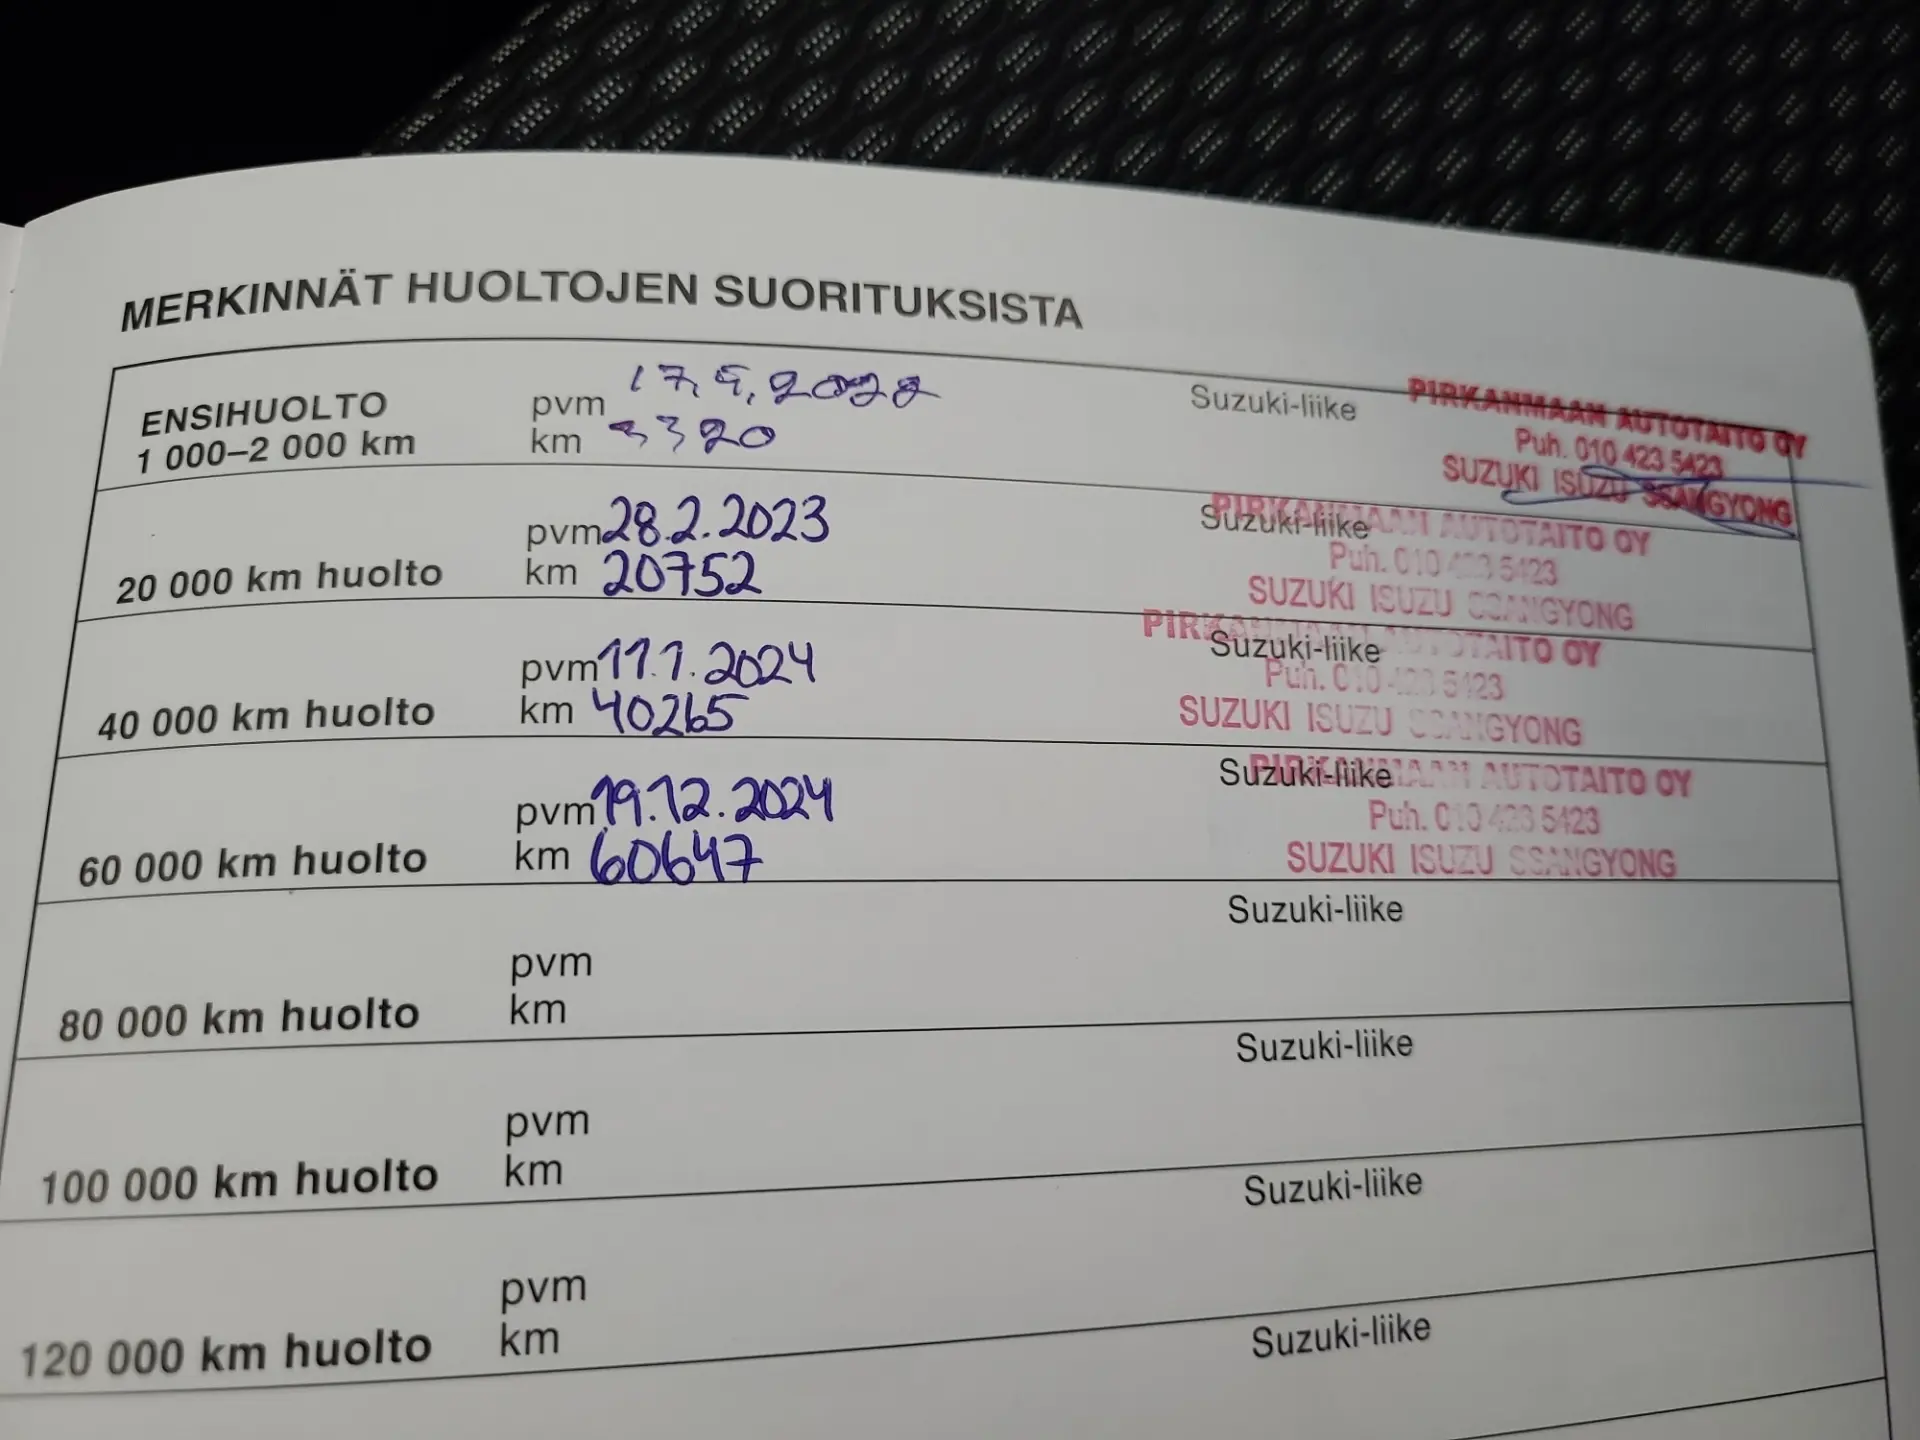 MERKINNÄT HUOLTOJEN SUORITUKSISTA
ENSIHUOLTO
1 000–2 000 km
pvm 17.5.2022
km 3320
Suzuki-liike
PIRKANMAAN AUTOTAITO OY
Puh. 010 423 5423
SUZUKI ISUZU SSANGYONG
20 000 km huolto
pvm 28.2.2023
km 20752
Suzuki-liike
PIRKANMAAN AUTOTAITO OY
Puh. 010 423 5423
SUZUKI ISUZU SSANGYONG
40 000 km huolto
pvm 11.1.2024
km 40265
Suzuki-liike
PIRKANMAAN AUTOTAITO OY
Puh. 010 423 5423
SUZUKI ISUZU SSANGYONG
60 000 km huolto
pvm 19.12.2024
km 60647
Suzuki-liike
PIRKANMAAN AUTOTAITO OY
Puh. 010 423 5423
SUZUKI ISUZU SSANGYONG
80 000 km huolto
pvm
km
Suzuki-liike
100 000 km huolto
pvm
km
Suzuki-liike
120 000 km huolto
pvm
km
Suzuki-liike